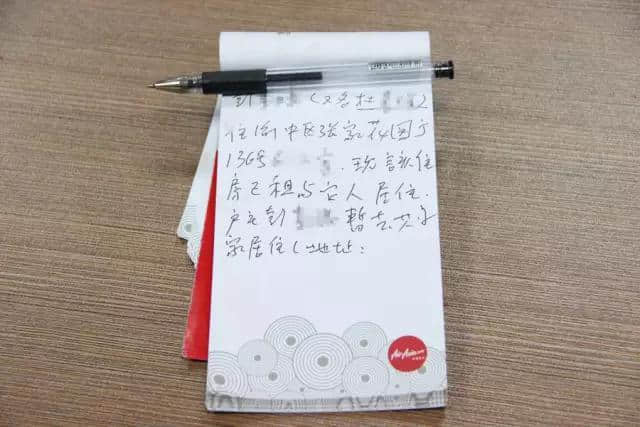 刘 (又名杜 )
住渝中区张家花园
136号 , 现该住
房已租与它人居住.
户主刘 暂去其子
家居住(地址:
AirAsia.com